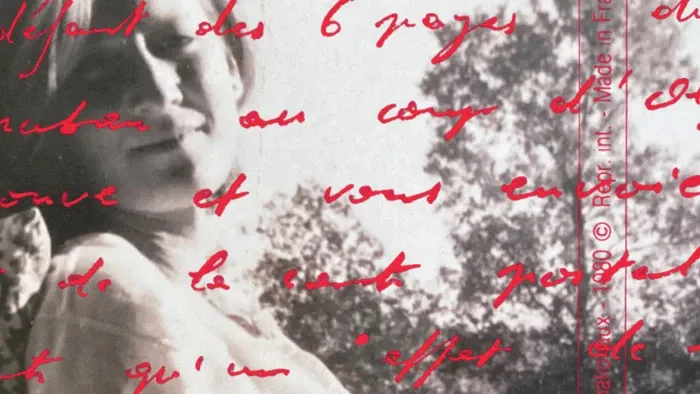 défaut des 6 pages du
ruban au coup d'
ouve et vous envoie
de la carte postal
qu'un effet de
- 1980 © Repr. int. - Made in Fra